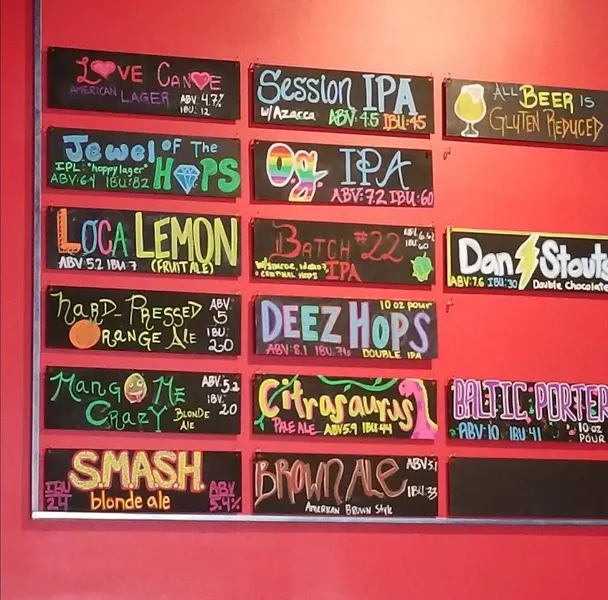 LOVE CANOE
AMERICAN LAGER
ABV 4.7%
IBU: 12
Jewel OF THE HOPS
IPL: "hoppy lager"
ABV: 6.4 IBU: 82
LOCA LEMON
ABV 5.2 IBU 7 (FRUIT ALE)
HARD-PRESSED
ORANGE ALE
ABV: 5
IBU: 20
MANGO ME
CRAZY BLONDE ALE
ABV: 5.2
IBU: 20
S.M.A.S.H.
blonde ale
IBU 24
ABV 5.4%
Session IPA
w/Azacca ABV: 4.5 IBU: 45
O.g. IPA
ABV: 7.2 IBU: 60
BATCH #22
IPA
IBU 60
DEEZ HOPS
10 OZ POUR
ABV: 8.1
DOUBLE IPA
Citrasaurus
PALE ALE ABV 5.9 IBU 44
BROWN ALE
IBU: 33
AMERICAN BROWN STYLE
ALL BEER IS
GLUTEN REDUCED
Dan Stouts
ABV: 7.6 IBU: 30 Double Chocolate
BALTIC PORTER
ABV: 10 IBU: 41
10 OZ
POUR